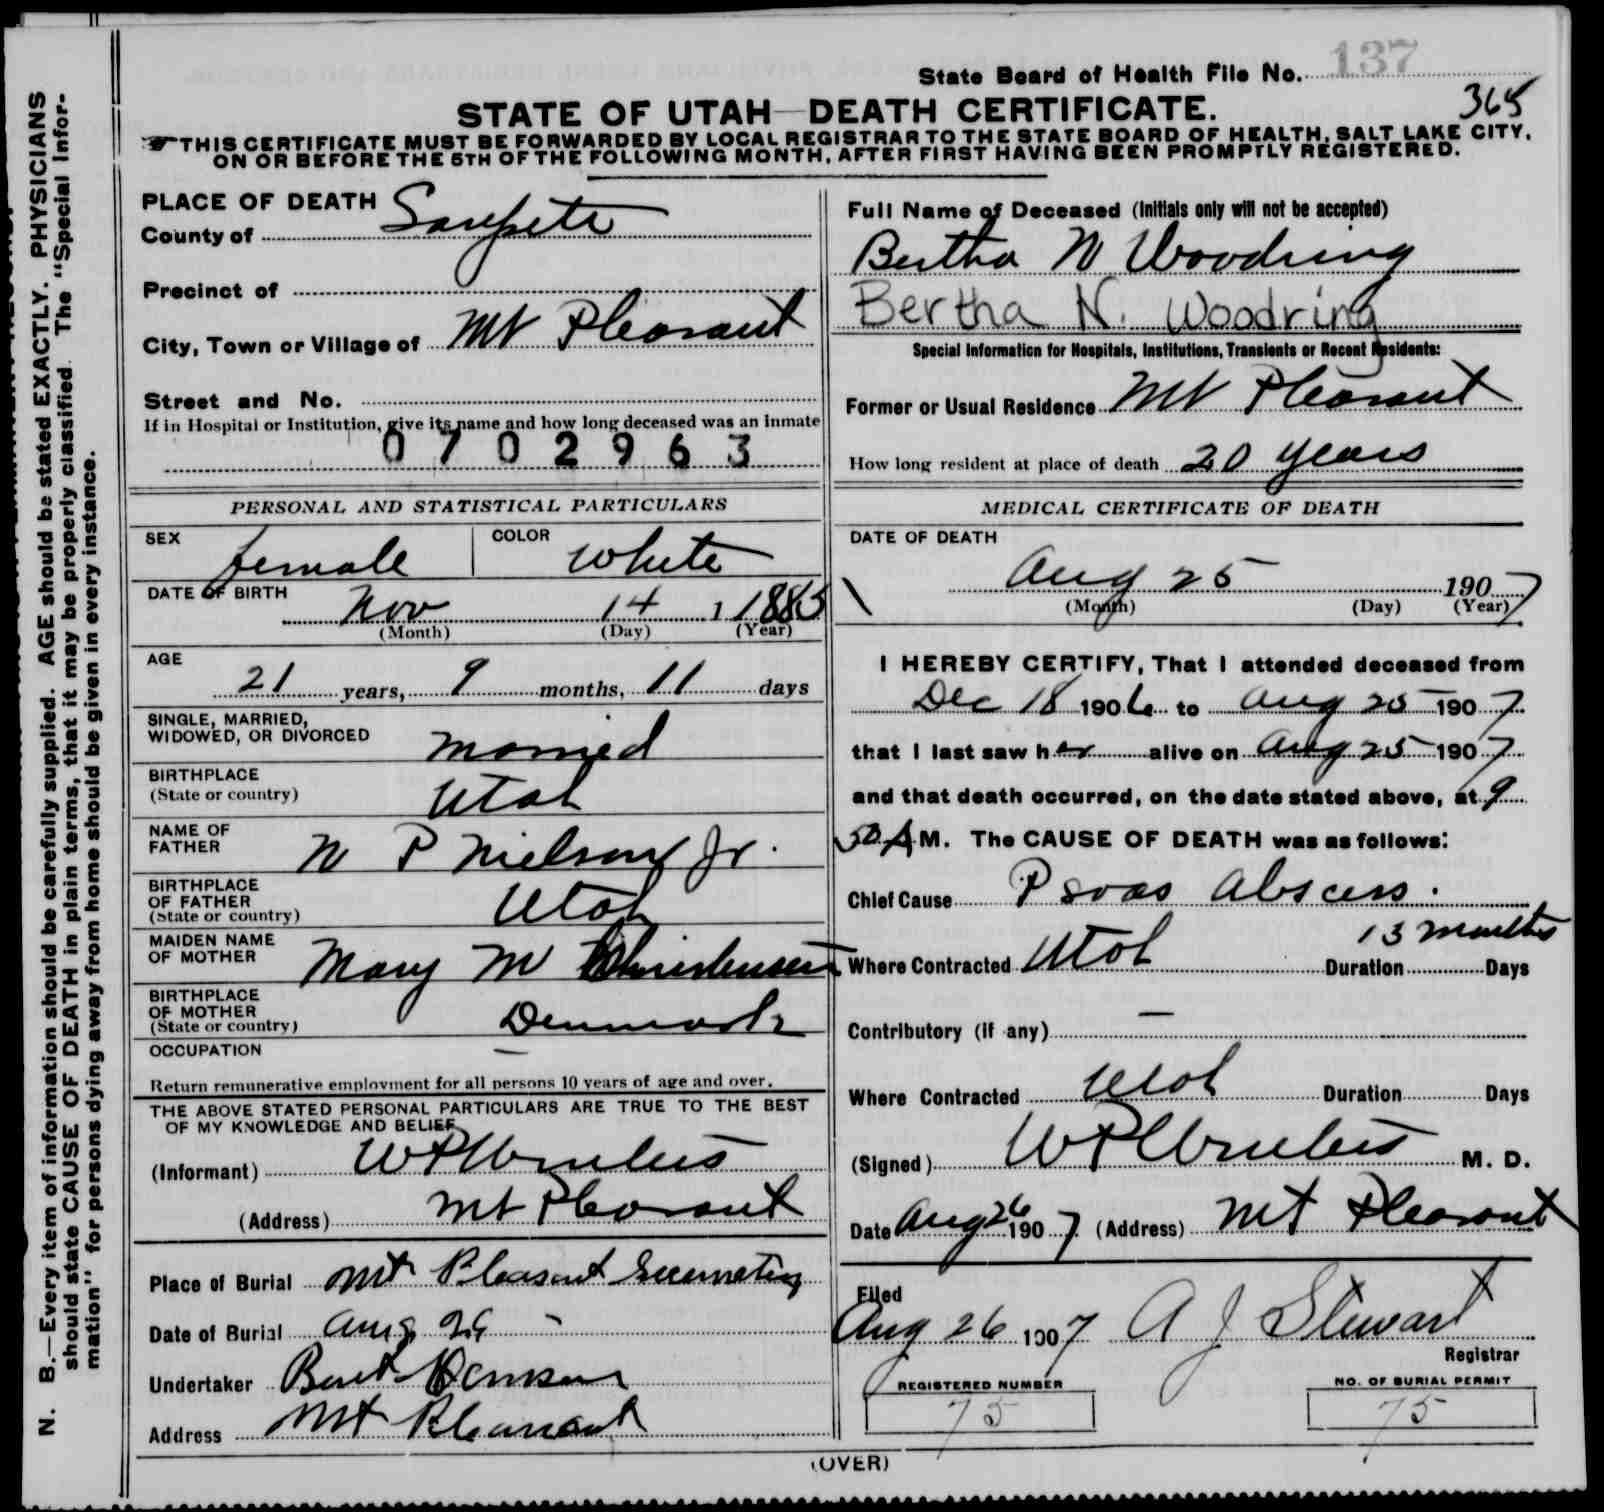 State Board of Health File No. 137
365
STATE OF UTAH—DEATH CERTIFICATE.
THIS CERTIFICATE MUST BE FORWARDED BY LOCAL REGISTRAR TO THE STATE BOARD OF HEALTH, SALT LAKE CITY,
ON OR BEFORE THE 5TH OF THE FOLLOWING MONTH, AFTER FIRST HAVING BEEN PROMPTLY REGISTERED.
PLACE OF DEATH
County of Sanpete
Precinct of
City, Town or Village of Mt Pleasant
Street and No.
If in Hospital or Institution, give its name and how long deceased was an inmate
0702963
Full Name of Deceased (Initials only will not be accepted)
Bertha N Woodring
Bertha N. Woodring
Special Information for Hospitals, Institutions, Transients or Recent Residents:
Former or Usual Residence Mt Pleasant
How long resident at place of death 20 years
PERSONAL AND STATISTICAL PARTICULARS
SEX female
COLOR White
DATE OF BIRTH
Nov 14 1 1885
(Month) (Day) (Year)
AGE
21 years, 9 months, 11 days
SINGLE, MARRIED,
WIDOWED, OR DIVORCED married
BIRTHPLACE
(State or country) Utah
NAME OF
FATHER N P Nielson Jr.
BIRTHPLACE
OF FATHER
(State or country) Utah
MAIDEN NAME
OF MOTHER Mary M Christensen
BIRTHPLACE
OF MOTHER
(State or country) Denmark
OCCUPATION —
Return remunerative employment for all persons 10 years of age and over.
THE ABOVE STATED PERSONAL PARTICULARS ARE TRUE TO THE BEST
OF MY KNOWLEDGE AND BELIEF
(Informant) W P
(Address) Mt Pleasant
Place of Burial Mt Pleasant
Date of Burial Aug 29
Undertaker
Address Mt Pleasant
MEDICAL CERTIFICATE OF DEATH
DATE OF DEATH
Aug 25 1907
(Month) (Day) (Year)
I HEREBY CERTIFY, That I attended deceased from
Dec 18 1906 to Aug 25 1907
that I last saw her alive on Aug 25 1907
and that death occurred, on the date stated above, at 9
50 A M. The CAUSE OF DEATH was as follows:
Chief Cause Psoas Abscess.
13 months
Where Contracted Utah Duration Days
Contributory (if any) —
Where Contracted Utah Duration Days
(Signed) W P M. D.
Date Aug 26 1907 (Address) Mt Pleasant
Filed
Aug 26 1907 A J Stewart
Registrar
REGISTERED NUMBER
75
NO. OF BURIAL PERMIT
75
(OVER)
N. B.—Every item of information should be carefully supplied. AGE should be stated EXACTLY. PHYSICIANS
should state CAUSE OF DEATH in plain terms, that it may be properly classified. The "Special Infor-
mation" for persons dying away from home should be given in every instance.